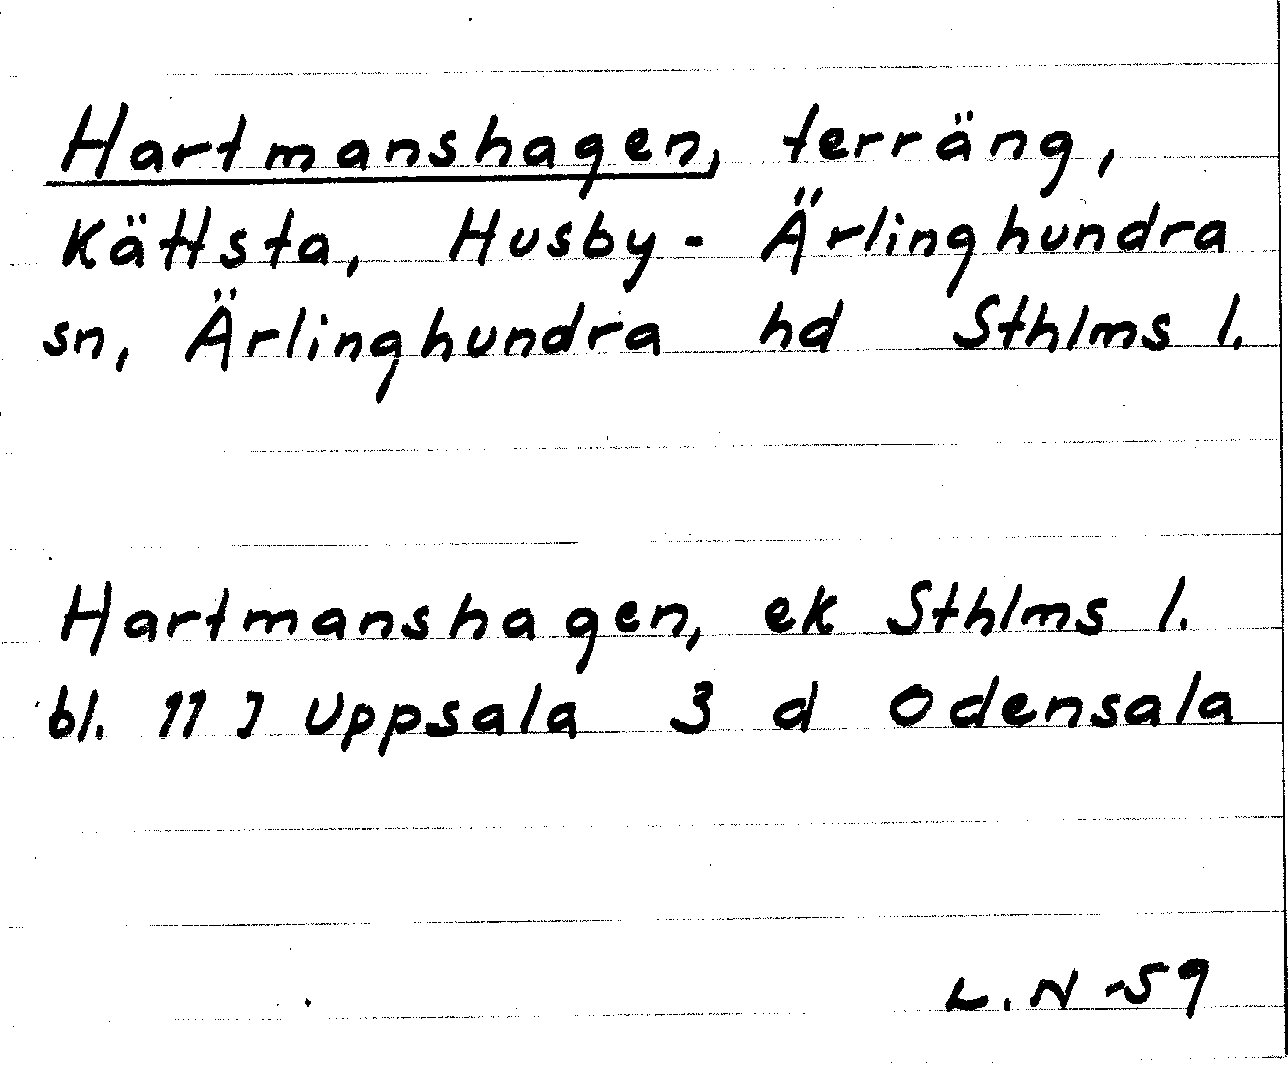 Hartmanshagen, terräng,
Kättsta, Husby-Ärlinghundra
sn, Ärlinghundra hd Sthlms l.
Hartmanshagen, ek Sthlms l.
bl. 11 J Uppsala 3 d Odensala
L. N -59